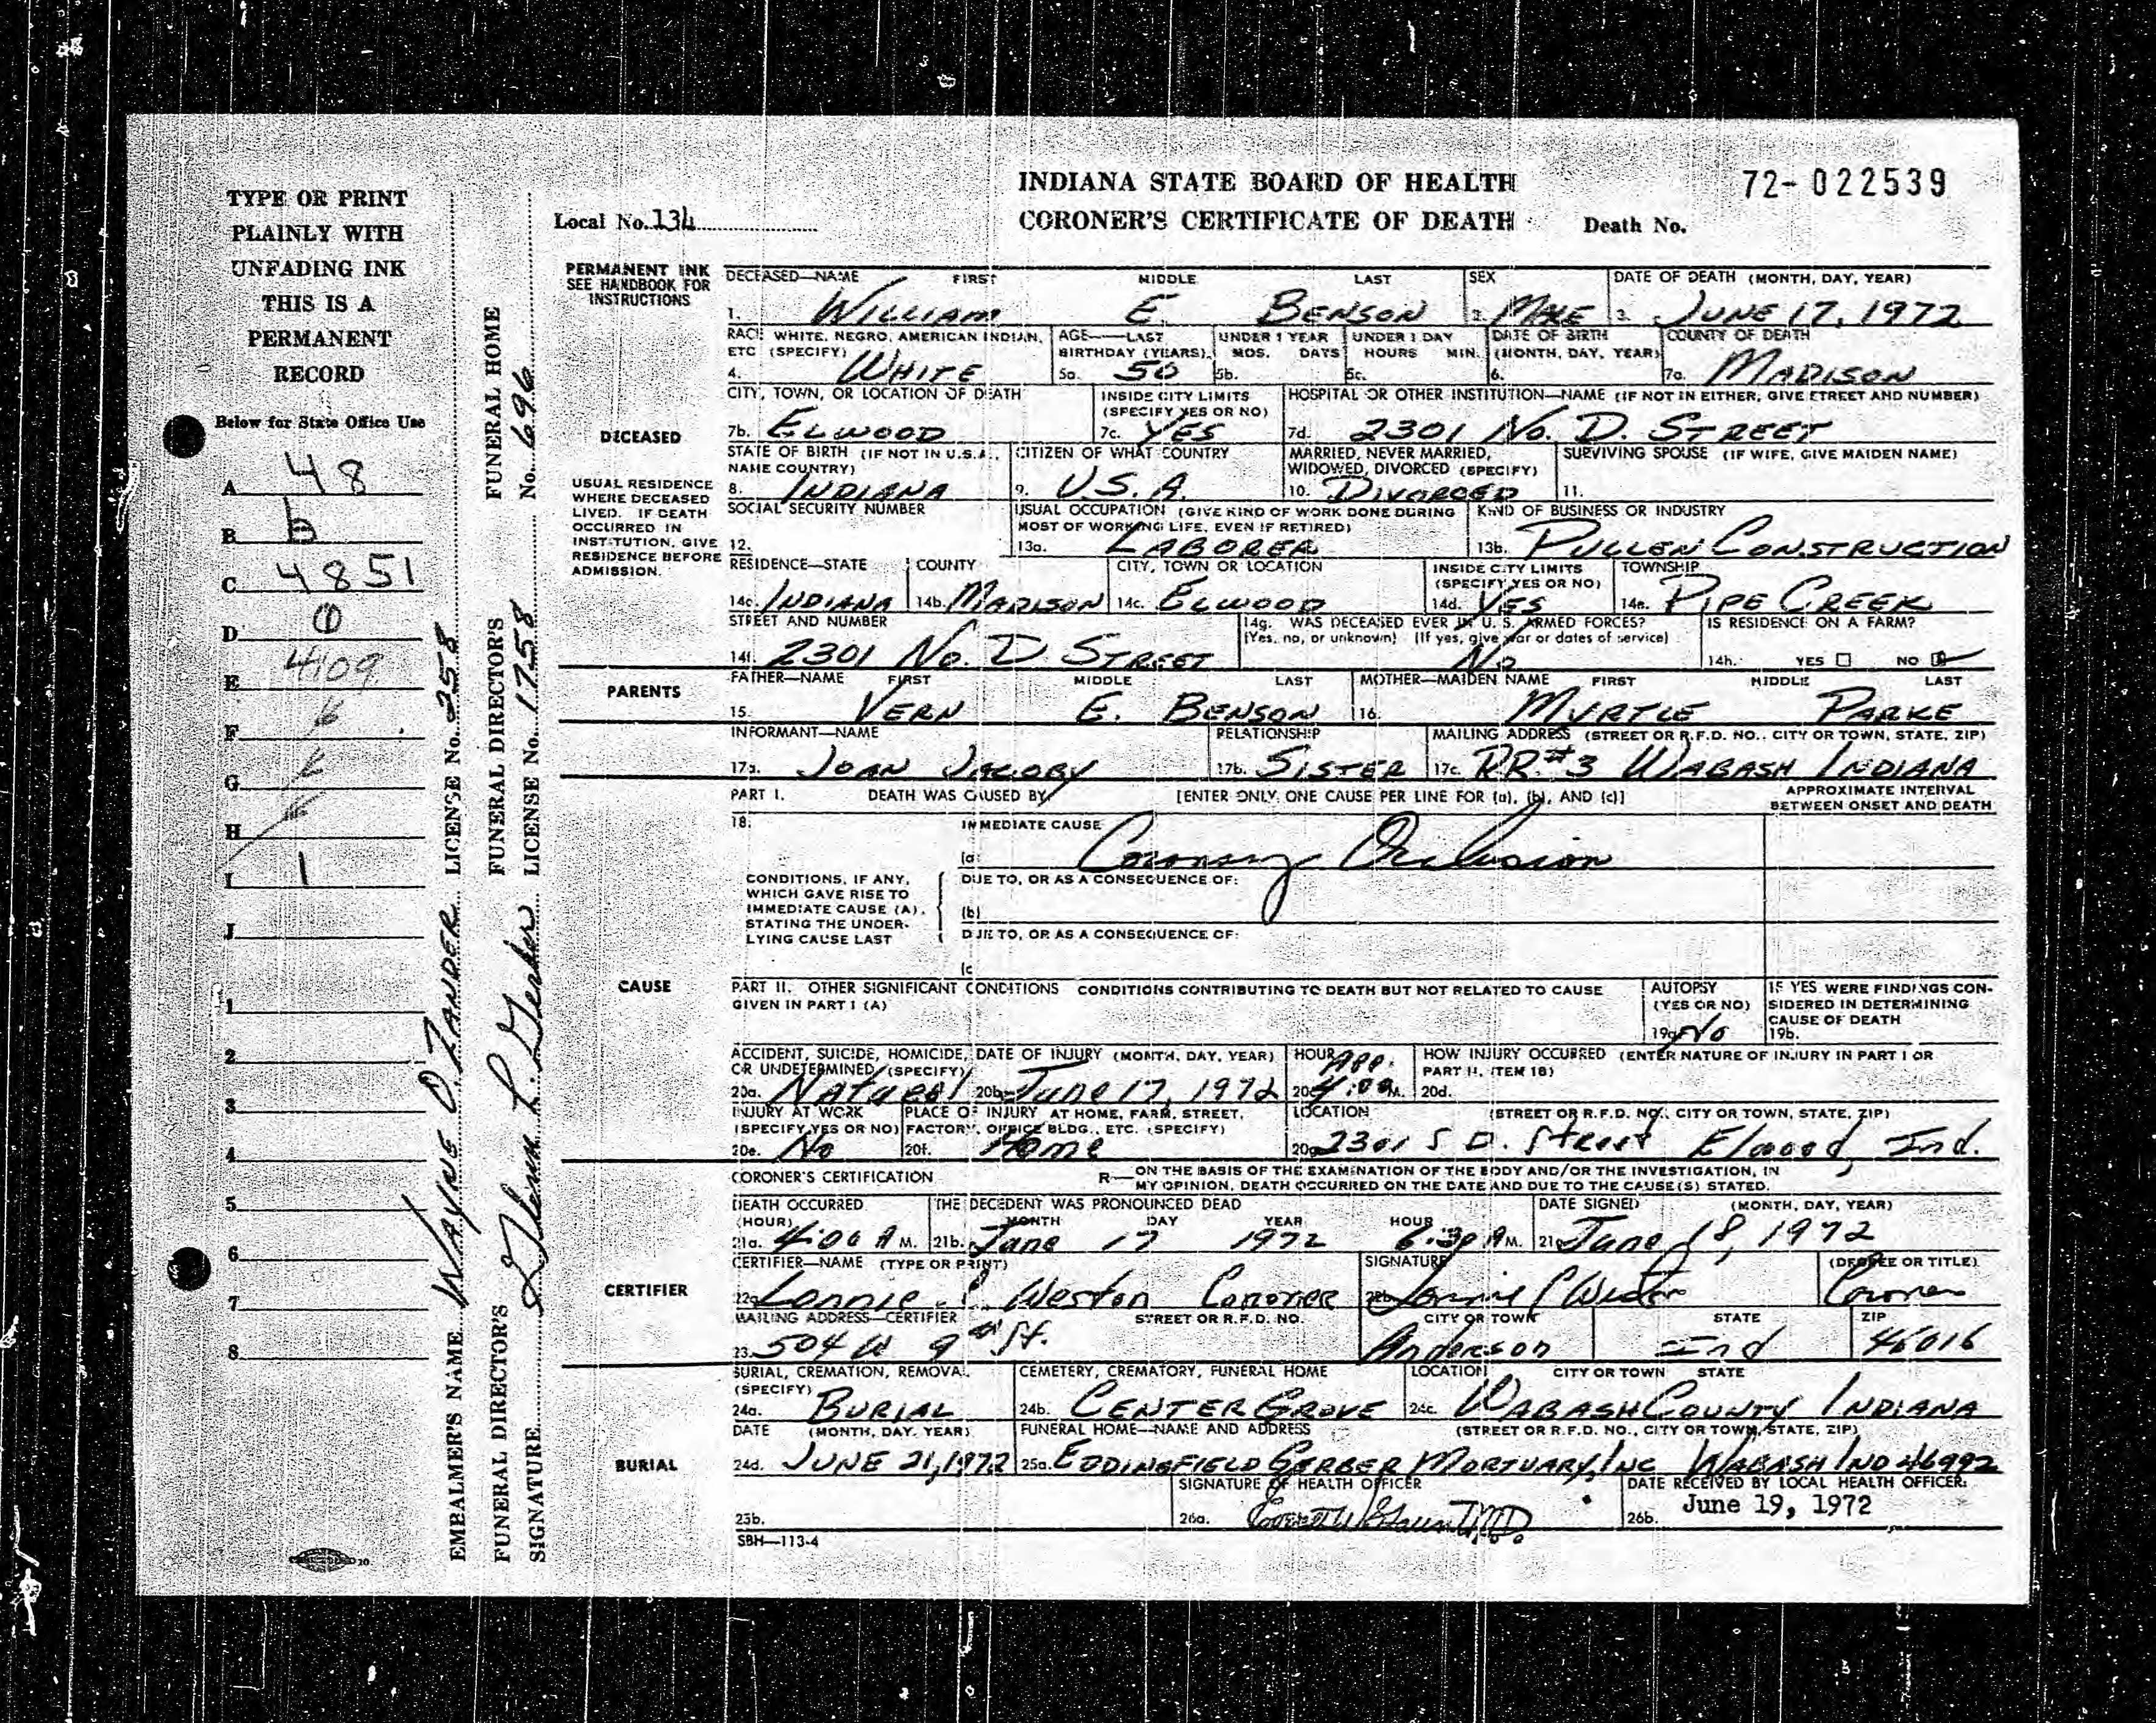 INDIANA STATE BOARD OF HEALTH
CORONER'S CERTIFICATE OF DEATH
72-022539
Local No. 134
Death No.
TYPE OR PRINT
PLAINLY WITH
UNFADING INK
THIS IS A
PERMANENT
RECORD
Below for State Office Use
A 48
B b
C 4851
D
E 4109
F
G
H
I 1
J
1
2
3
4
5
6
7
8
EMBALMER'S NAME WAYNE O ZANDER LICENSE No. 358
FUNERAL DIRECTOR'S FUNERAL DIRECTOR'S FUNERAL HOME
SIGNATURE Glenn L. Gerber LICENSE No. 1758 No. 696
PERMANENT INK
SEE HANDBOOK FOR
INSTRUCTIONS
DECEASED
USUAL RESIDENCE
WHERE DECEASED
LIVED. IF DEATH
OCCURRED IN
INSTITUTION, GIVE
RESIDENCE BEFORE
ADMISSION.
DECEASED—NAME FIRST MIDDLE LAST SEX DATE OF DEATH (MONTH, DAY, YEAR)
1. WILLIAM E. BENSON 2. MALE 3. JUNE 17, 1972
RACE WHITE, NEGRO, AMERICAN INDIAN, AGE—LAST UNDER 1 YEAR UNDER 1 DAY DATE OF BIRTH COUNTY OF DEATH
ETC (SPECIFY) BIRTHDAY (YEARS) MOS. DAYS HOURS MIN. (MONTH, DAY, YEAR)
4. WHITE 5a. 50 5b. 5c. 6. 7a. MADISON
CITY, TOWN, OR LOCATION OF DEATH INSIDE CITY LIMITS HOSPITAL OR OTHER INSTITUTION—NAME (IF NOT IN EITHER, GIVE STREET AND NUMBER)
(SPECIFY YES OR NO)
7b. ELWOOD 7c. YES 7d. 2301 No. D. STREET
STATE OF BIRTH (IF NOT IN U.S.A., CITIZEN OF WHAT COUNTRY MARRIED, NEVER MARRIED, SURVIVING SPOUSE (IF WIFE, GIVE MAIDEN NAME)
NAME COUNTRY) WIDOWED, DIVORCED (SPECIFY)
8. INDIANA 9. U.S.A. 10. DIVORCED 11.
SOCIAL SECURITY NUMBER USUAL OCCUPATION (GIVE KIND OF WORK DONE DURING KIND OF BUSINESS OR INDUSTRY
MOST OF WORKING LIFE, EVEN IF RETIRED)
12. 13a. LABORER 13b. PULLEN CONSTRUCTION
RESIDENCE—STATE COUNTY CITY, TOWN OR LOCATION INSIDE CITY LIMITS TOWNSHIP
(SPECIFY YES OR NO)
14a. INDIANA 14b. MADISON 14c. ELWOOD 14d. YES 14e. PIPE CREEK
STREET AND NUMBER 14g. WAS DECEASED EVER IN U. S. ARMED FORCES? IS RESIDENCE ON A FARM?
(Yes, no, or unknown) (If yes, give war or dates of service)
14f. 2301 No. D STREET No 14h. YES NO
PARENTS
FATHER—NAME FIRST MIDDLE LAST MOTHER—MAIDEN NAME FIRST MIDDLE LAST
15. VERN E. BENSON 16. MYRTLE PARKE
INFORMANT—NAME RELATIONSHIP MAILING ADDRESS (STREET OR R.F.D. NO., CITY OR TOWN, STATE, ZIP)
17a. JOAN JACOBY 17b. SISTER 17c. RR.#3 WABASH INDIANA
PART I. DEATH WAS CAUSED BY: [ENTER ONLY ONE CAUSE PER LINE FOR (a), (b), AND (c)] APPROXIMATE INTERVAL
BETWEEN ONSET AND DEATH
18. IMMEDIATE CAUSE
(a) Coronary Occlusion
CONDITIONS, IF ANY,
WHICH GAVE RISE TO
IMMEDIATE CAUSE (A),
STATING THE UNDER-
LYING CAUSE LAST
DUE TO, OR AS A CONSEQUENCE OF:
(b)
DUE TO, OR AS A CONSEQUENCE OF:
(c
CAUSE
PART II. OTHER SIGNIFICANT CONDITIONS CONDITIONS CONTRIBUTING TO DEATH BUT NOT RELATED TO CAUSE
GIVEN IN PART I (A)
AUTOPSY
(YES OR NO)
19a. No
IF YES WERE FINDINGS CON-
SIDERED IN DETERMINING
CAUSE OF DEATH
19b.
ACCIDENT, SUICIDE, HOMICIDE, DATE OF INJURY (MONTH, DAY, YEAR) HOUR HOW INJURY OCCURRED (ENTER NATURE OF INJURY IN PART I OR
OR UNDETERMINED (SPECIFY) App. PART II, ITEM 18)
20a. Natural 20b. June 17, 1972 20c. 4:00 M. 20d.
INJURY AT WORK PLACE OF INJURY AT HOME, FARM, STREET, LOCATION (STREET OR R.F.D. NO., CITY OR TOWN, STATE, ZIP)
(SPECIFY YES OR NO) FACTORY, OFFICE BLDG., ETC. (SPECIFY)
20e. No 20f. Home 20g. 2301 S D. Street Elwood, Ind.
CORONER'S CERTIFICATION R— ON THE BASIS OF THE EXAMINATION OF THE BODY AND/OR THE INVESTIGATION, IN
MY OPINION, DEATH OCCURRED ON THE DATE AND DUE TO THE CAUSE(S) STATED.
DEATH OCCURRED THE DECEDENT WAS PRONOUNCED DEAD DATE SIGNED (MONTH, DAY, YEAR)
(HOUR) MONTH DAY YEAR HOUR
21a. 4:00 A M. 21b. June 17 1972 6:30 A M. 21c. June 18, 1972
CERTIFIER
CERTIFIER—NAME (TYPE OR PRINT) SIGNATURE (DEGREE OR TITLE)
22a. Lonnie Weston Coroner 22b. Lonnie Weston Coroner
MAILING ADDRESS—CERTIFIER STREET OR R.F.D. NO. CITY OR TOWN STATE ZIP
23. 504 W 9th St. Anderson Ind 46016
BURIAL
BURIAL, CREMATION, REMOVAL CEMETERY, CREMATORY, FUNERAL HOME LOCATION CITY OR TOWN STATE
(SPECIFY)
24a. BURIAL 24b. CENTER GROVE 24c. WABASH COUNTY INDIANA
DATE (MONTH, DAY, YEAR) FUNERAL HOME—NAME AND ADDRESS (STREET OR R.F.D. NO., CITY OR TOWN, STATE, ZIP)
24d. JUNE 21, 1972 25a. EDDINGFIELD GERBER MORTUARY, INC WABASH IND 46992
SIGNATURE OF HEALTH OFFICER DATE RECEIVED BY LOCAL HEALTH OFFICER:
25b. 26a. M.D. 26b. June 19, 1972
SBH—113-4